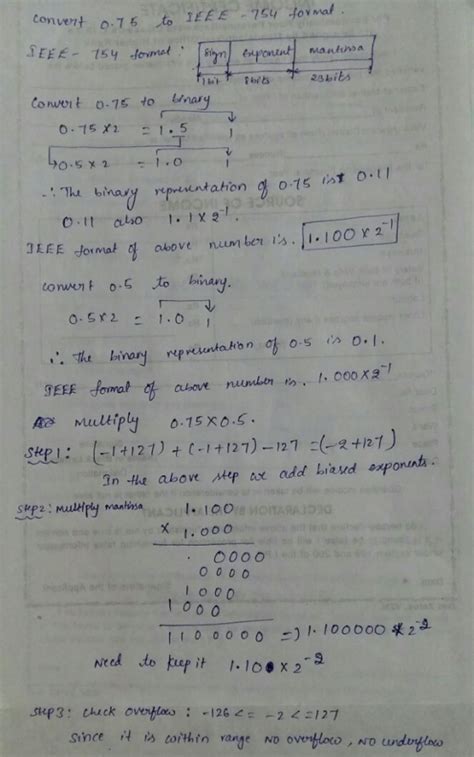 convert 0.75 to IEEE-754 format.
IEEE-754 format: Sign exponent mantissa
1bit 8bits 23bits
Convert 0.75 to binary
0.75 x 2 = 1.5 1
0.5 x 2 = 1.0 1
∴ The binary representation of 0.75 is 0.11
0.11 also 1.1 x 2^-1.
IEEE format of above number is. 1.100 x 2^-1
convert 0.5 to binary.
0.5 x 2 = 1.0 1
∴ The binary representation of 0.5 is 0.1.
IEEE format of above number is. 1.000 x 2^-1
Multiply 0.75 x 0.5.
Step 1: (-1+127) + (-1+127) - 127 = (-2+127)
In the above step we add biased exponents.
Step 2: Multiply mantissa 1.100
x 1.000
0000
0000
1000
1000
1100000 => 1.100000 x 2^-2
Need to keep it 1.10 x 2^-2
Step 3: check overflow: -126 <= -2 <= 127
Since it is within range no overflow, no underflow